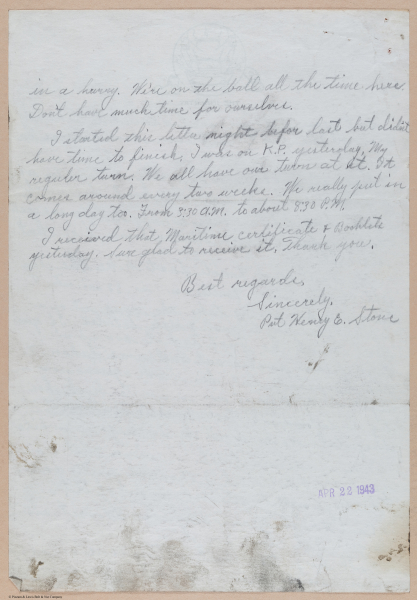 in a hurry. We're on the ball all the time here.
Don't have much time for ourselves.
I started this letter night befor last but didn't
have time to finish. I was on K.P. yesterday. My
regular turn. We all have our turn at it. It
comes around every two weeks. We really put in
a long day too. From 3:30 A.M. to about 8:30 P.M.
I received that Maritime certificate & Booklete
yesterday. Sure glad to receive it. Thank you.
Best regards,
Sincerely,
Pvt Henry E. Stone
APR 22 1943